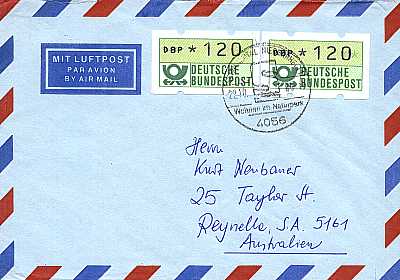 MIT LUFTPOST
PAR AVION
BY AIR MAIL
DBP * 120
DEUTSCHE
BUNDESPOST
DBP * 120
DEUTSCHE
BUNDESPOST
Wohnen im Naturpark
4056
Herrn
Kurt Neubauer
25 Taylor St.
Reynella, S.A. 5161
Australien